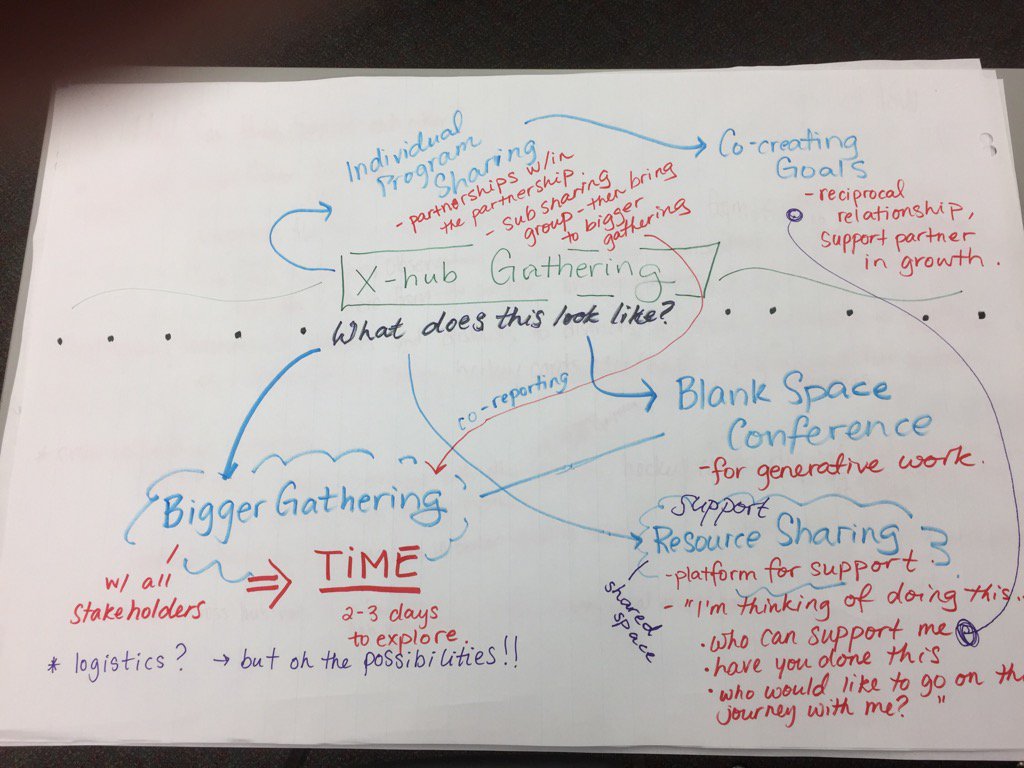 Individual
Program
Sharing
- partnerships w/in
the partnership
- sub sharing
group - then bring
to bigger
gathering
Co-creating
Goals
- reciprocal
relationship,
support partner
in growth.
X-hub Gathering
What does this look like?
co-reporting
Blank Space
Conference
- for generative work.
Bigger Gathering
w/ all
stakeholders
⇒ TIME
2-3 days
to explore.
* logistics? → but oh the possibilities!!
support
Resource Sharing
shared
space
- platform for support
- "I'm thinking of doing this..
• who can support me
• have you done this
• who would like to go on th
journey with me? "